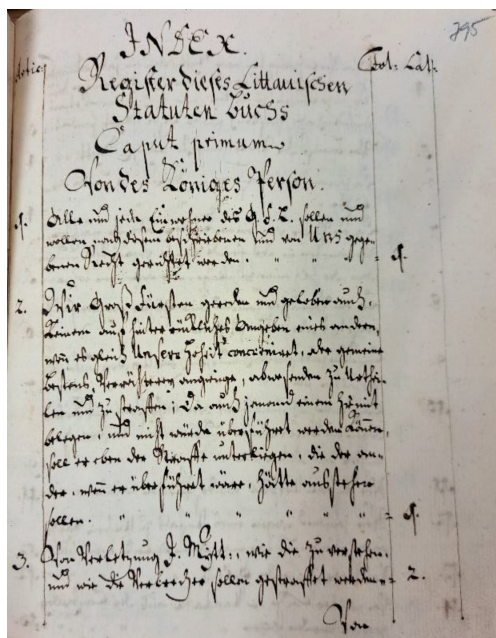 395
INDEX.
Artic: Fol: Lat:
Register dieses Littauischen
Statuten Buchs
Caput primum
Von des Königes Person.
1. Alle und jede Einwohner des G. F. L. sollen und
wollen nach diesem beschriebenen und von Uns gege-
benen Recht gerichtet werden. 1.
2. Wir Groß Fürsten gereden und geloben auch,
keinem auf hinterrückliches Angeben eines andern,
wenn es gleich Unsere Hoheit concerniret, oder gemeine
bestens, Verrätherey anginge, abwesenden zu Urthei-
len und zu straffen; Da auch jemand einen hiemit
belegen, und nicht würde überführet werden können,
soll er eben der Straffe unterliegen, die der an-
der, wenn er überführet wäre, hätte ausstehen
sollen. 1.
3. Von Verletzung J. Mytt:, wie die zu verstehen,
und wie die Verbrecher sollen gestraffet werden. 2.
Von